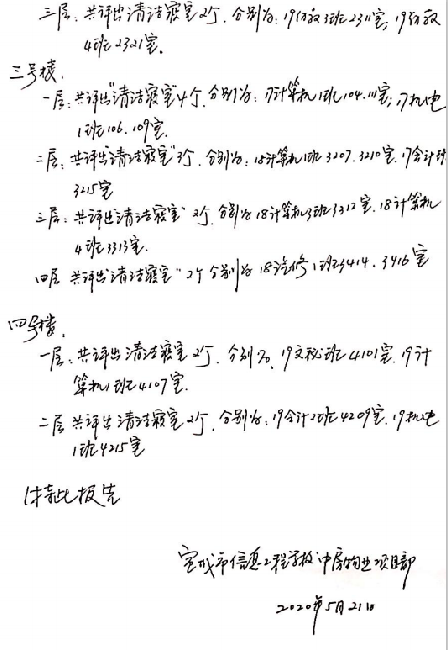 三层:共评出清洁寝室2个,分别为:19幼教3班2311室;19幼教
4班2321室.
三号楼.
一层:共评出"清洁寝室"4个.分别为:17计算机1班104.111室;17机电
1班106.109室.
二层:共评出"清洁寝室"3个,分别为:18计算机1班3207.3210室.17会计班
3215室
三层:共评出"清洁寝室"2个,分别为18计算机3班3312室.18计算机
4班3313室.
四层 共评出"清洁寝室"2个分别为18汽修1班3414.3416室
四号楼.
一层.共评出清洁寝室2个,分别为,19文秘班4101室.19计
算机1班4107室.
二层 共评出清洁寝室2个,分别为:19会计2班4209室.19机电
1班4215室
特此报告
宣城市信息工程学校中房物业项目部
2020年5月21日